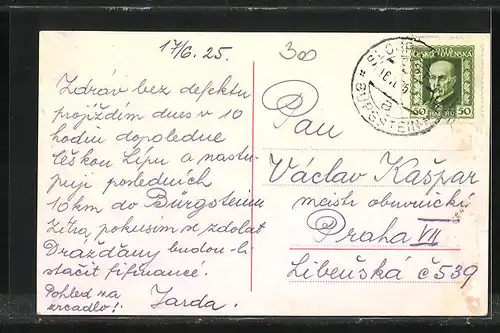 17/6. 25.
300
Zdráv bez defektu
projíždím dnes v 10
hodin dopoledne
Českou Lípu a nastu-
puji posledních
10 km do Bürgsteinu
Zítra, pokusím se zdolat
Drážďany budou-li
stačit fifinance.
Pohled na
zrcadlo!. Jarda.
ČESKOSLOVENSKÁ
50 50
BÜRGSTEIN
Pan
Václav Kašpar
mistr obuvnický
Praha VII
Libeňská č 539